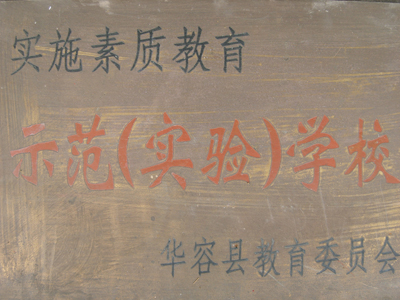 实施素质教育
示范(实验)学校
华容县教育委员会